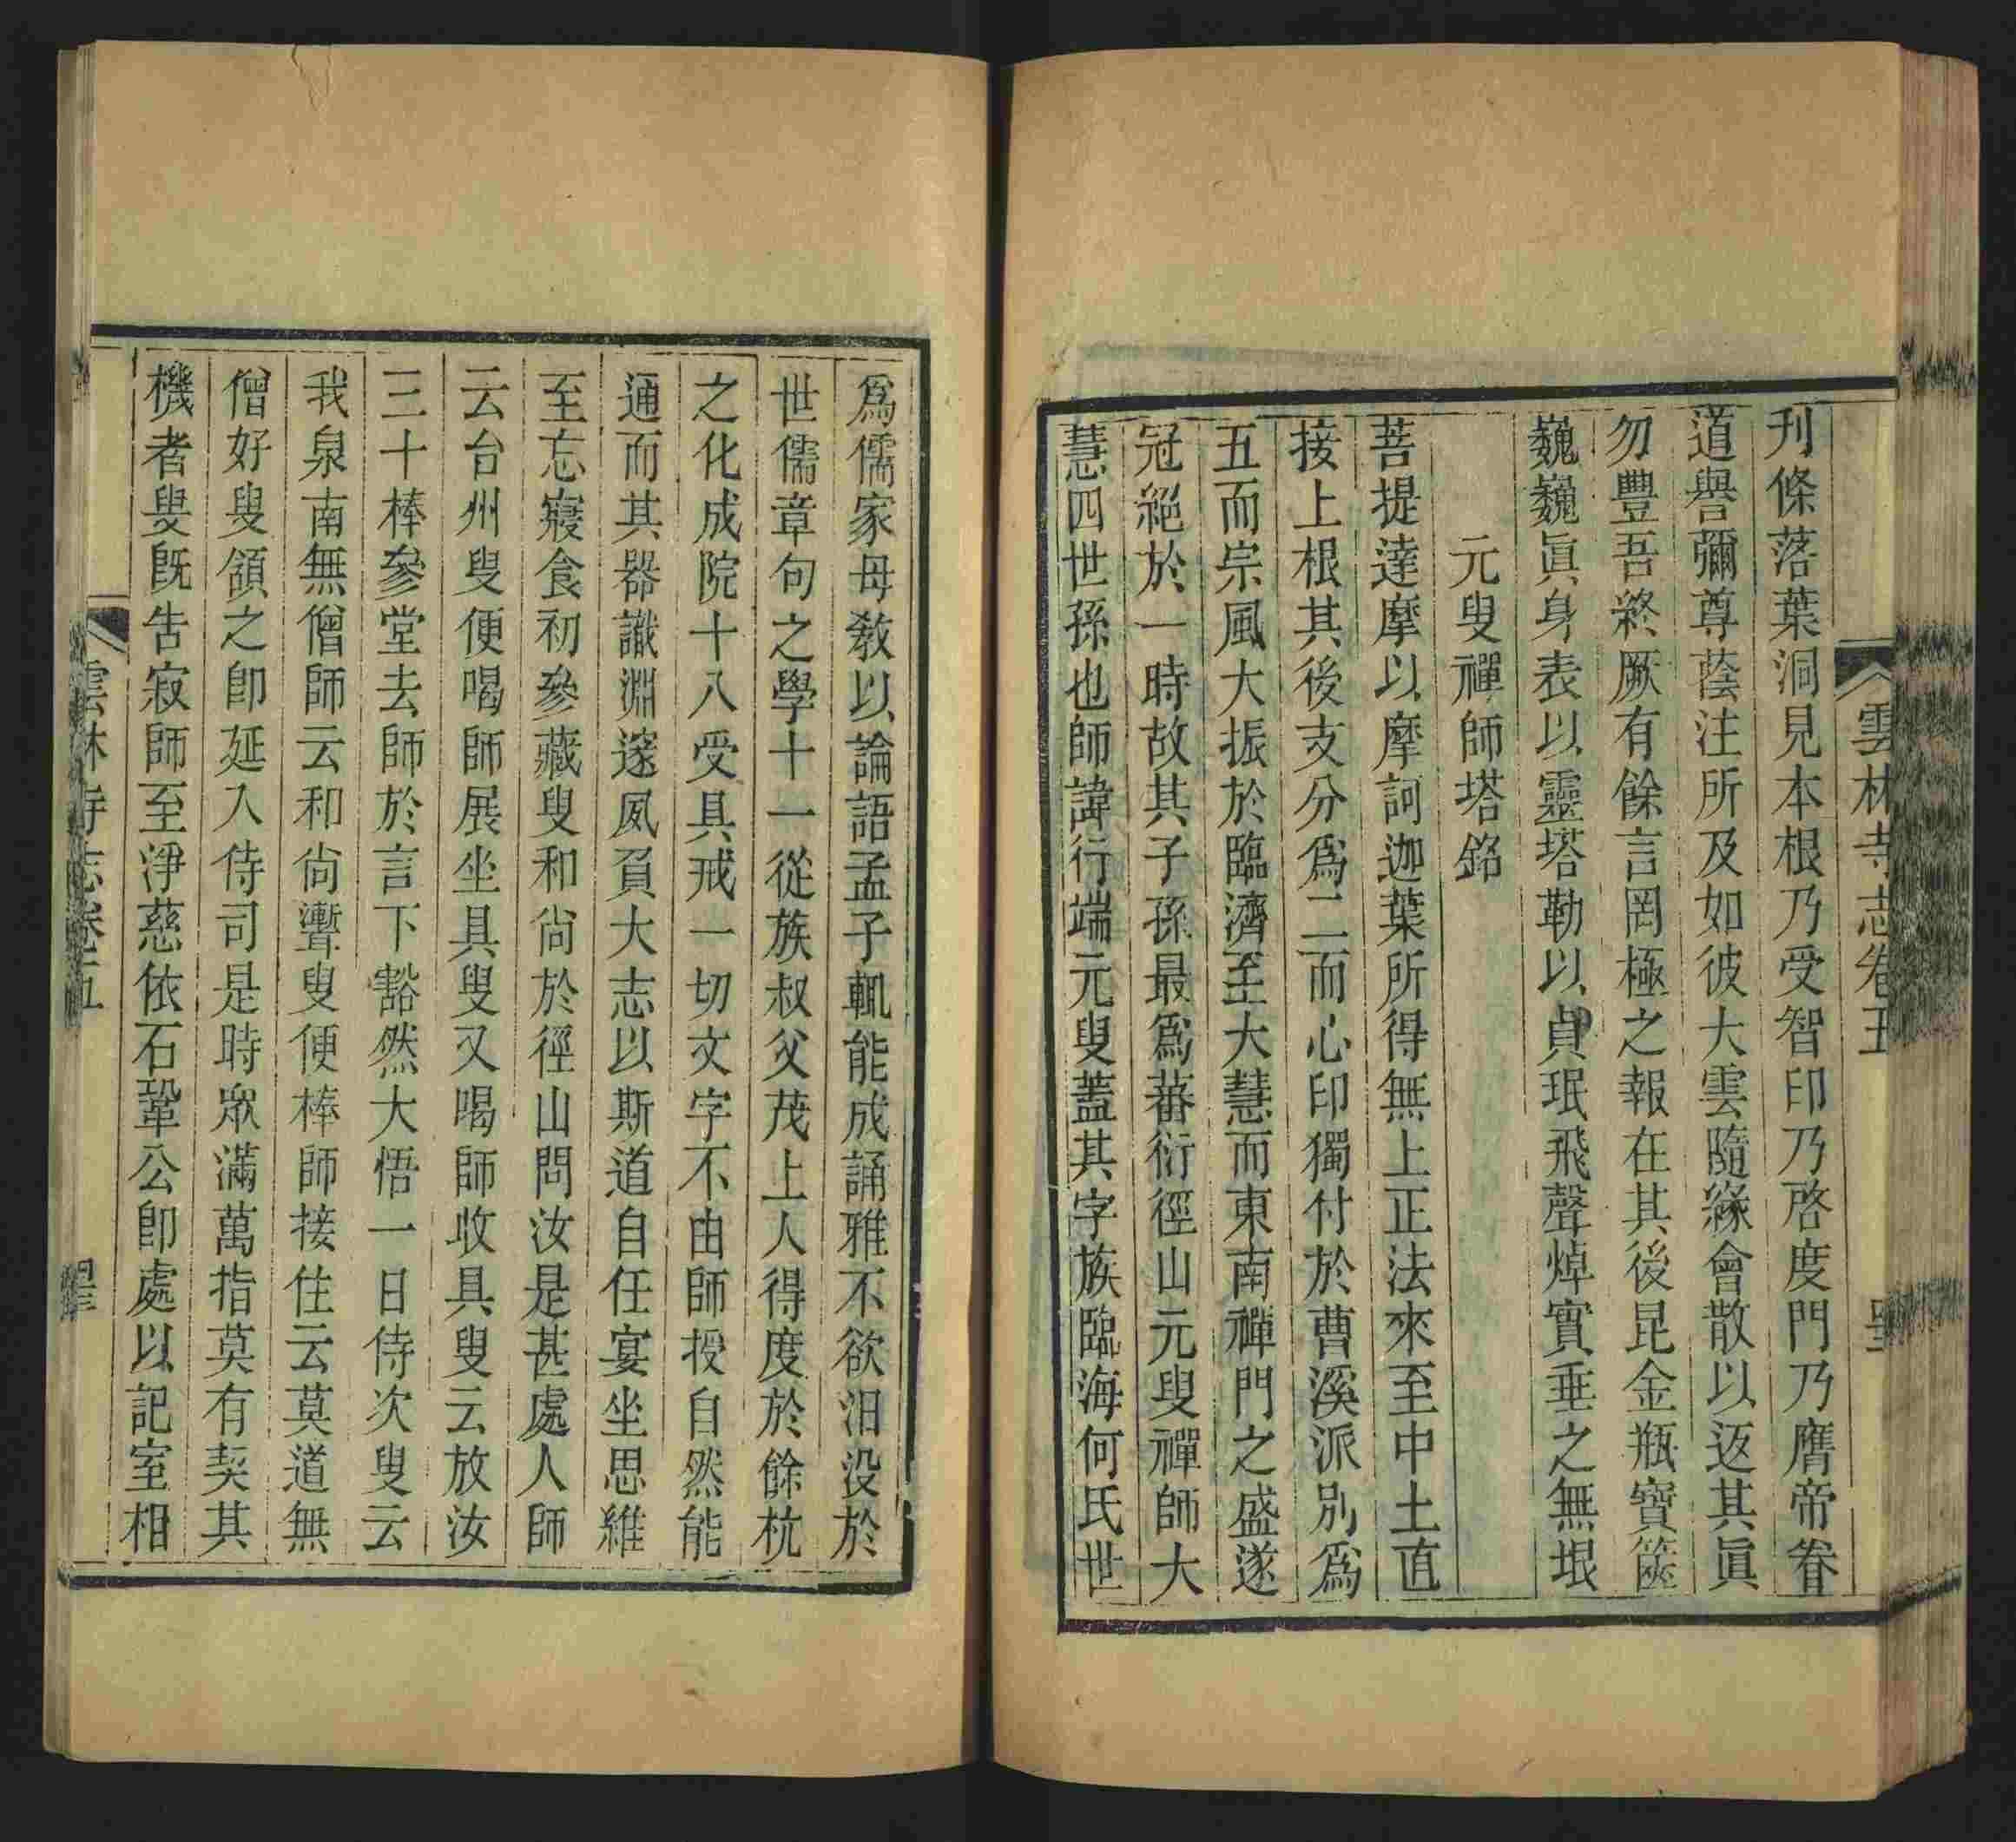 雲林寺志卷五
刊條落葉洞見本根乃受智印乃啓度門乃膺帝眷
道譽彌尊蔭注所及如彼大雲隨緣會散以返其眞
勿豐吾終厥有餘言罔極之報在其後昆金瓶寶篋
巍巍眞身表以靈塔勒以貞珉飛聲焯實垂之無垠
元叟禪師塔銘
菩提達摩以摩訶迦葉所得無上正法來至中土直
接上根其後支分爲二而心印獨付於曹溪派別爲
五而宗風大振於臨濟至大慧而東南禪門之盛遂
冠絕於一時故其子孫最爲蕃衍徑山元叟禪師大
慧四世孫也師諱行端元叟蓋其字族臨海何氏世
爲儒家母教以論語孟子輒能成誦雅不欲汨没於
世儒章句之學十一從族叔父茂上人得度於餘杭
之化成院十八受具戒一切文字不由師授自然能
通而其器識淵邃夙負大志以斯道自任宴坐思維
至忘寢食初參藏叟和尙於徑山問汝是甚處人師
云台州叟便喝師展坐具叟又喝師收具叟云放汝
三十棒參堂去師於言下豁然大悟一日侍次叟云
我泉南無僧師云和尙聻叟便棒師接住云莫道無
僧好叟頷之卽延入侍司是時衆滿萬指莫有契其
機者叟旣告寂師至淨慈依石鞏公卽處以記室相
雲林寺志卷五